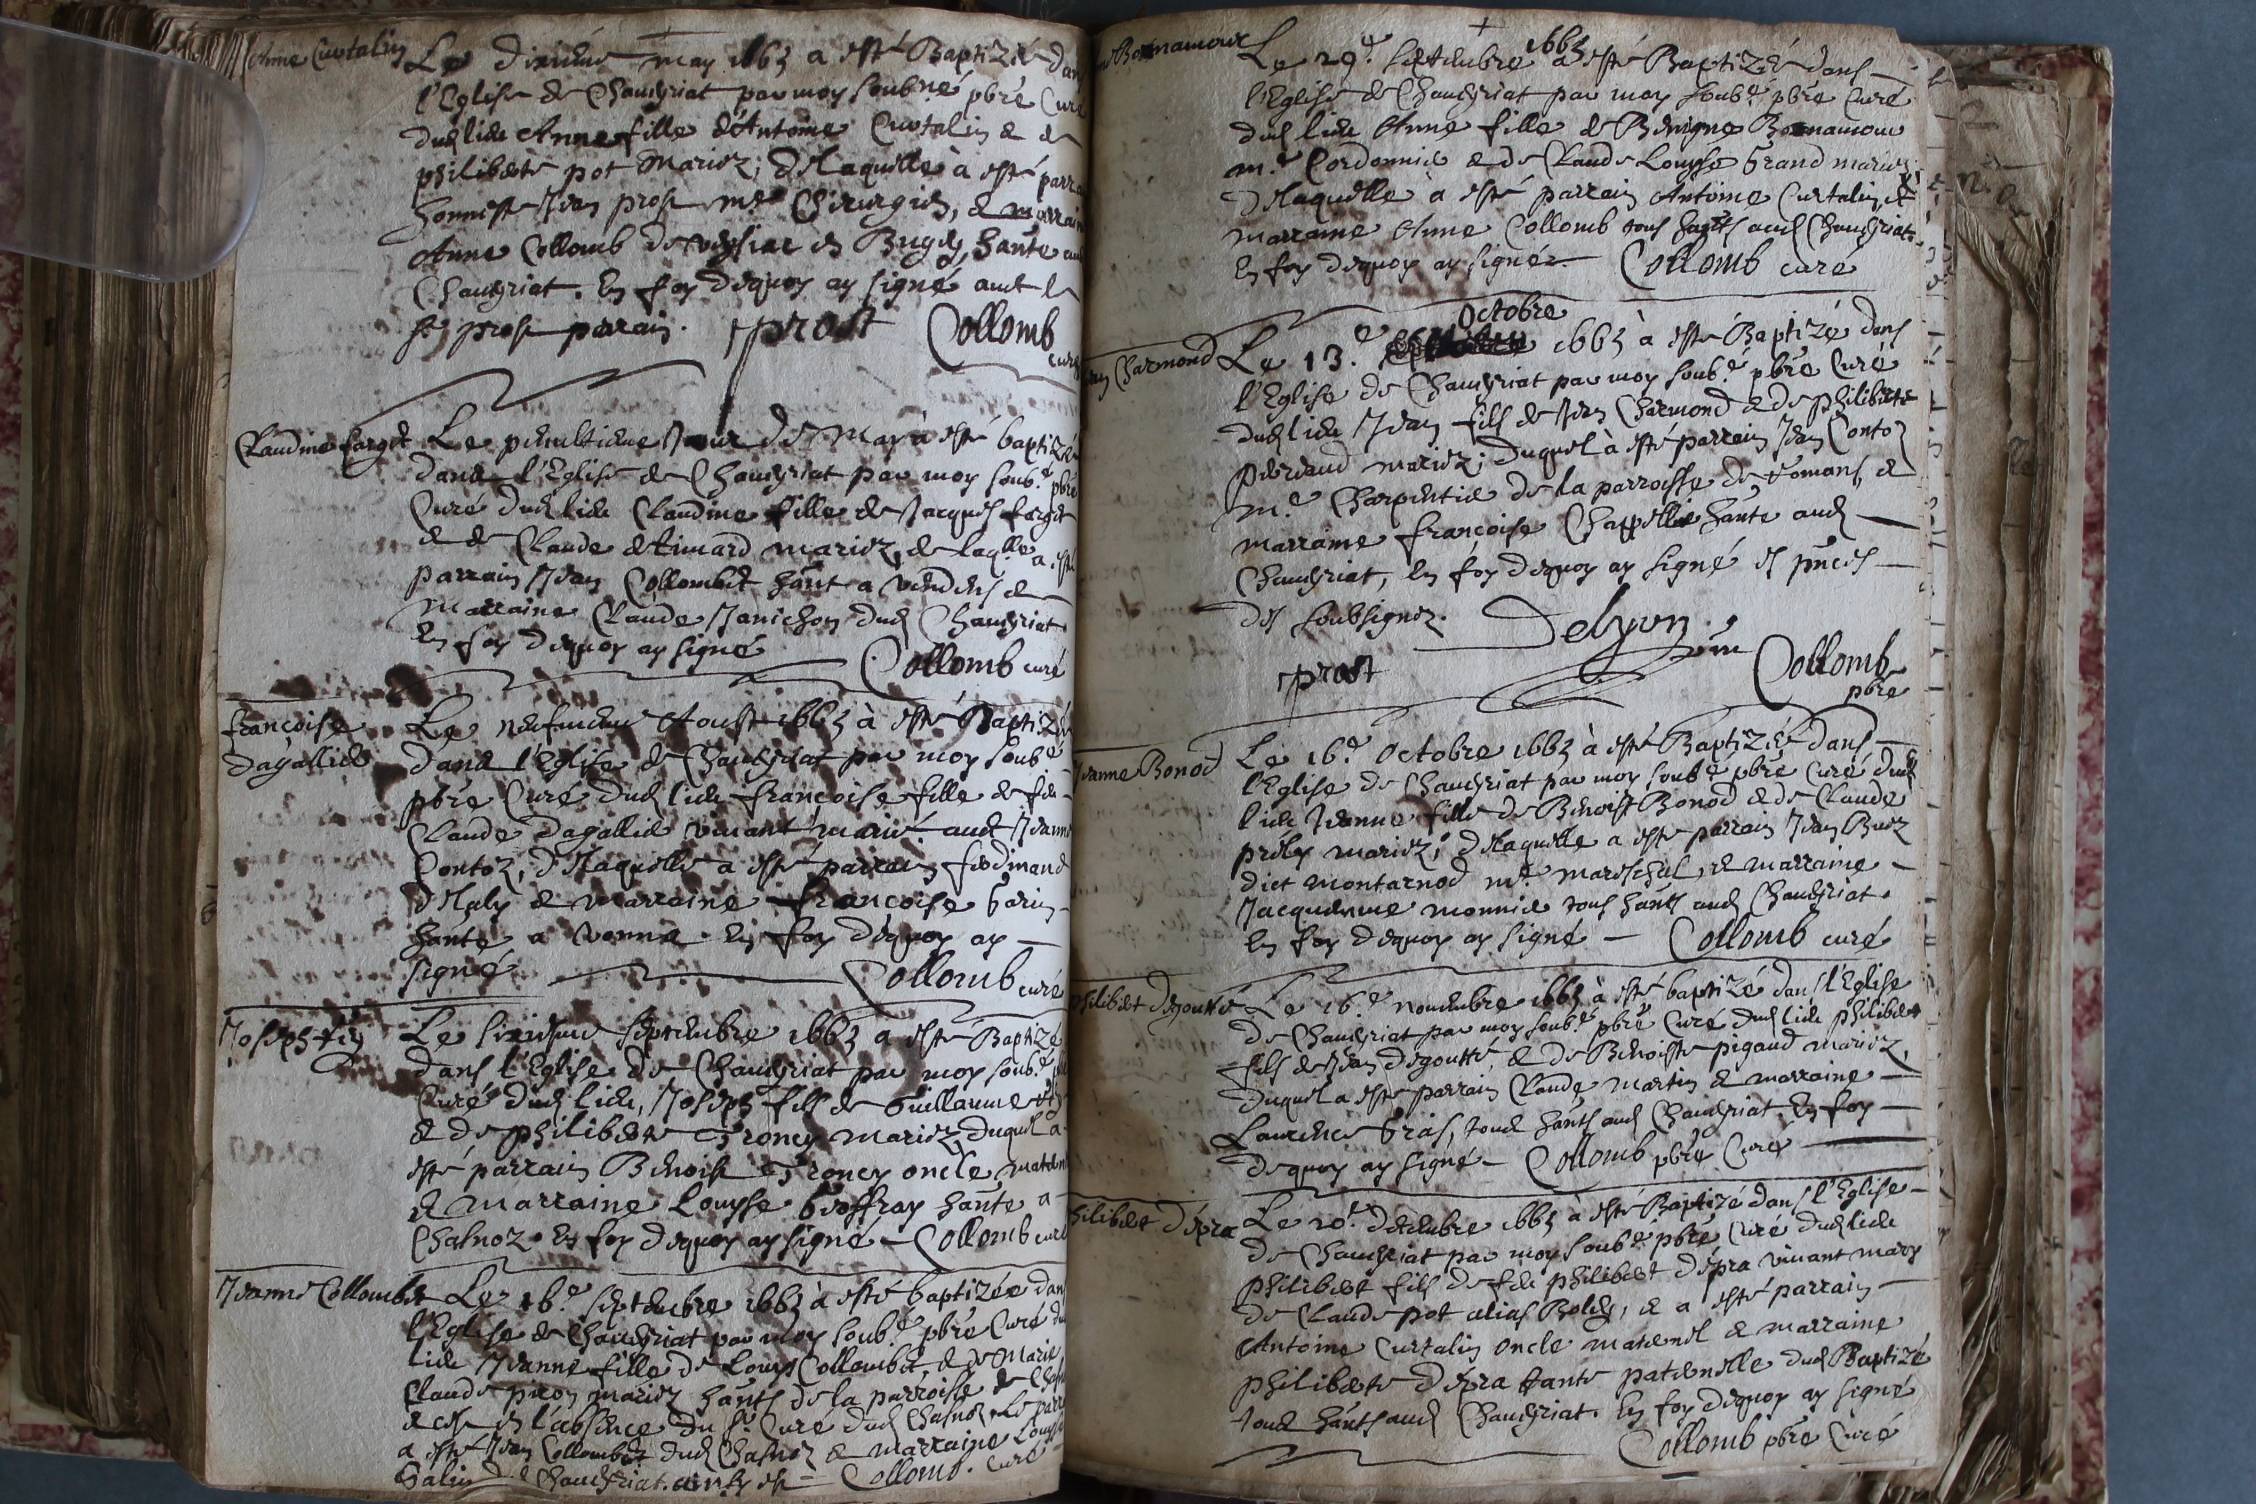 Anne Curtalin
Le dixieme may 1663 a esté Baptizée dans
l'Eglise de Chaveyriat par moy soubné pbre Curé
dud lieu Anne fille d'Antoine Curtalin & de
philiberte pot mariez; de laquelle à esté parrain
honneste Jean prost me Chirurgien, & marraine
Anne Collomb de en Bugey, hante aud
Chaveyriat. En foy dequoy ay signé avec le
sr prost parrain. prost Collomb
curé
Claudine farget
Le penultieme Jour de May à esté baptizée
dans l'Eglise de Chaveyriat par moy soub.é pbre
Curé dud lieu Claudine fille de Jacques farget
& de Claude mariez, de laqlle a esté
parrain Jean Collombet hant a &
marraine Claude Janichon dud Chaveyriat.
En foy dequoy ay signé
Collomb curé
françoise
dagallier
Le neufvieme Aoust 1663 à esté Baptizée
dans l'Eglise de Chaveyriat par moy soubé
pbre Curé dud lieu françoise fille de feu
Claude dagallier vivant marié avec Jeanne
Contoz, de laquelle a esté parrain ferdinand
& marraine françoise Garin
hante a Vonna. En foy dequoy ay
signé Collomb curé
Joseph fey
Le sixiesme septembre 1663 a esté Baptizé
dans l'Eglise de Chaveyriat par moy soub.é
Curé dud lieu, Joseph fils de Guillaume
& de philiberte Troncy mariez, duquel a
esté parrain Benoist Troncy oncle maternel
& marraine Louyse Geoffray hante a
Chasnoz. En foy dequoy ay signé Collomb curé
Jeanne Collombet
Le 16.e septembre 1663 à esté baptizée dans
l'Eglise de Chaveyriat par moy soub.é pbre Curé du
lieu Jeanne fille de Louys Collombet, & de Marie
Claude mariez hants de la parroisse de
& ce en l'absence du sr Curé dud Chasnoz. Le parrain
a esté Jean Collombet dud Chasnoz & marraine Louyse
Galin Chaveyriat. Collomb. curé
Bonnamour
Le 29.e septembre 1663 a esté Baptizée dans
l'Eglise de Chaveyriat par moy soub.é pbre Curé
dud lieu Anne fille de Benigne Bonnamour
m.e Cordonnier & de Claude Louyse Grand mariez
de laquelle à esté parrain Antoine Curtalin, &
marraine Anne Collomb tous hants aud Chaveyriat.
En foy dequoy ay signé Collomb curé
Charmond
Octobre
Le 13.e 1663 à esté Baptizé dans
l'Eglise de Chaveyriat par moy soub.é pbre Curé
dud lieu Jean fils de Jean Charmond & de philiberte
mariez; duquel à esté parrain Jean Contoz
m.e Charpentier de la parroisse de Romans, &
marraine françoise hante aud
Chaveyriat, En foy dequoy ay signé en pnces
des soubsignez. Delyon
prost Collomb
pbre
Jeanne Bonod
Le 16.e Octobre 1663 à esté Baptizée dans
l'Eglise de Chaveyriat par moy soubé pbre Curé dud
lieu Jeanne fille de Benoist Bonod & de Claude
mariez; de laquelle a esté parrain Jean
dict montarnod me mareschal, & marraine
Jacqueme monnier tous hants aud Chaveyriat.
En foy dequoy ay signé Collomb curé
philibert degoutte
Le 16.e novembre 1663 à esté baptizé dans l'Eglise
de Chaveyriat par moy soub.é pbre Curé dud lieu philibert
fils de Jean degoutte, & de Benoiste pigaud mariez,
duquel a esté parrain Claude martin & marraine
Laurence Gras, tous hants aud Chaveyriat. En foy
dequoy ay signé Collomb pbre Curé
philibert dépra
Le 20.e decembre 1663 à esté Baptizé dans l'Eglise
de Chaveyriat par moy soubé pbre Curé dud lieu
philibert fils de feu philibert dépra vivant mary
de Claude pot alias, & a esté parrain
Antoine Curtalin oncle maternel & marraine
philiberte dépra tante paternelle dud Baptizé
tous hants aud Chaveyriat. En foy dequoy ay signé
Collomb pbre Curé